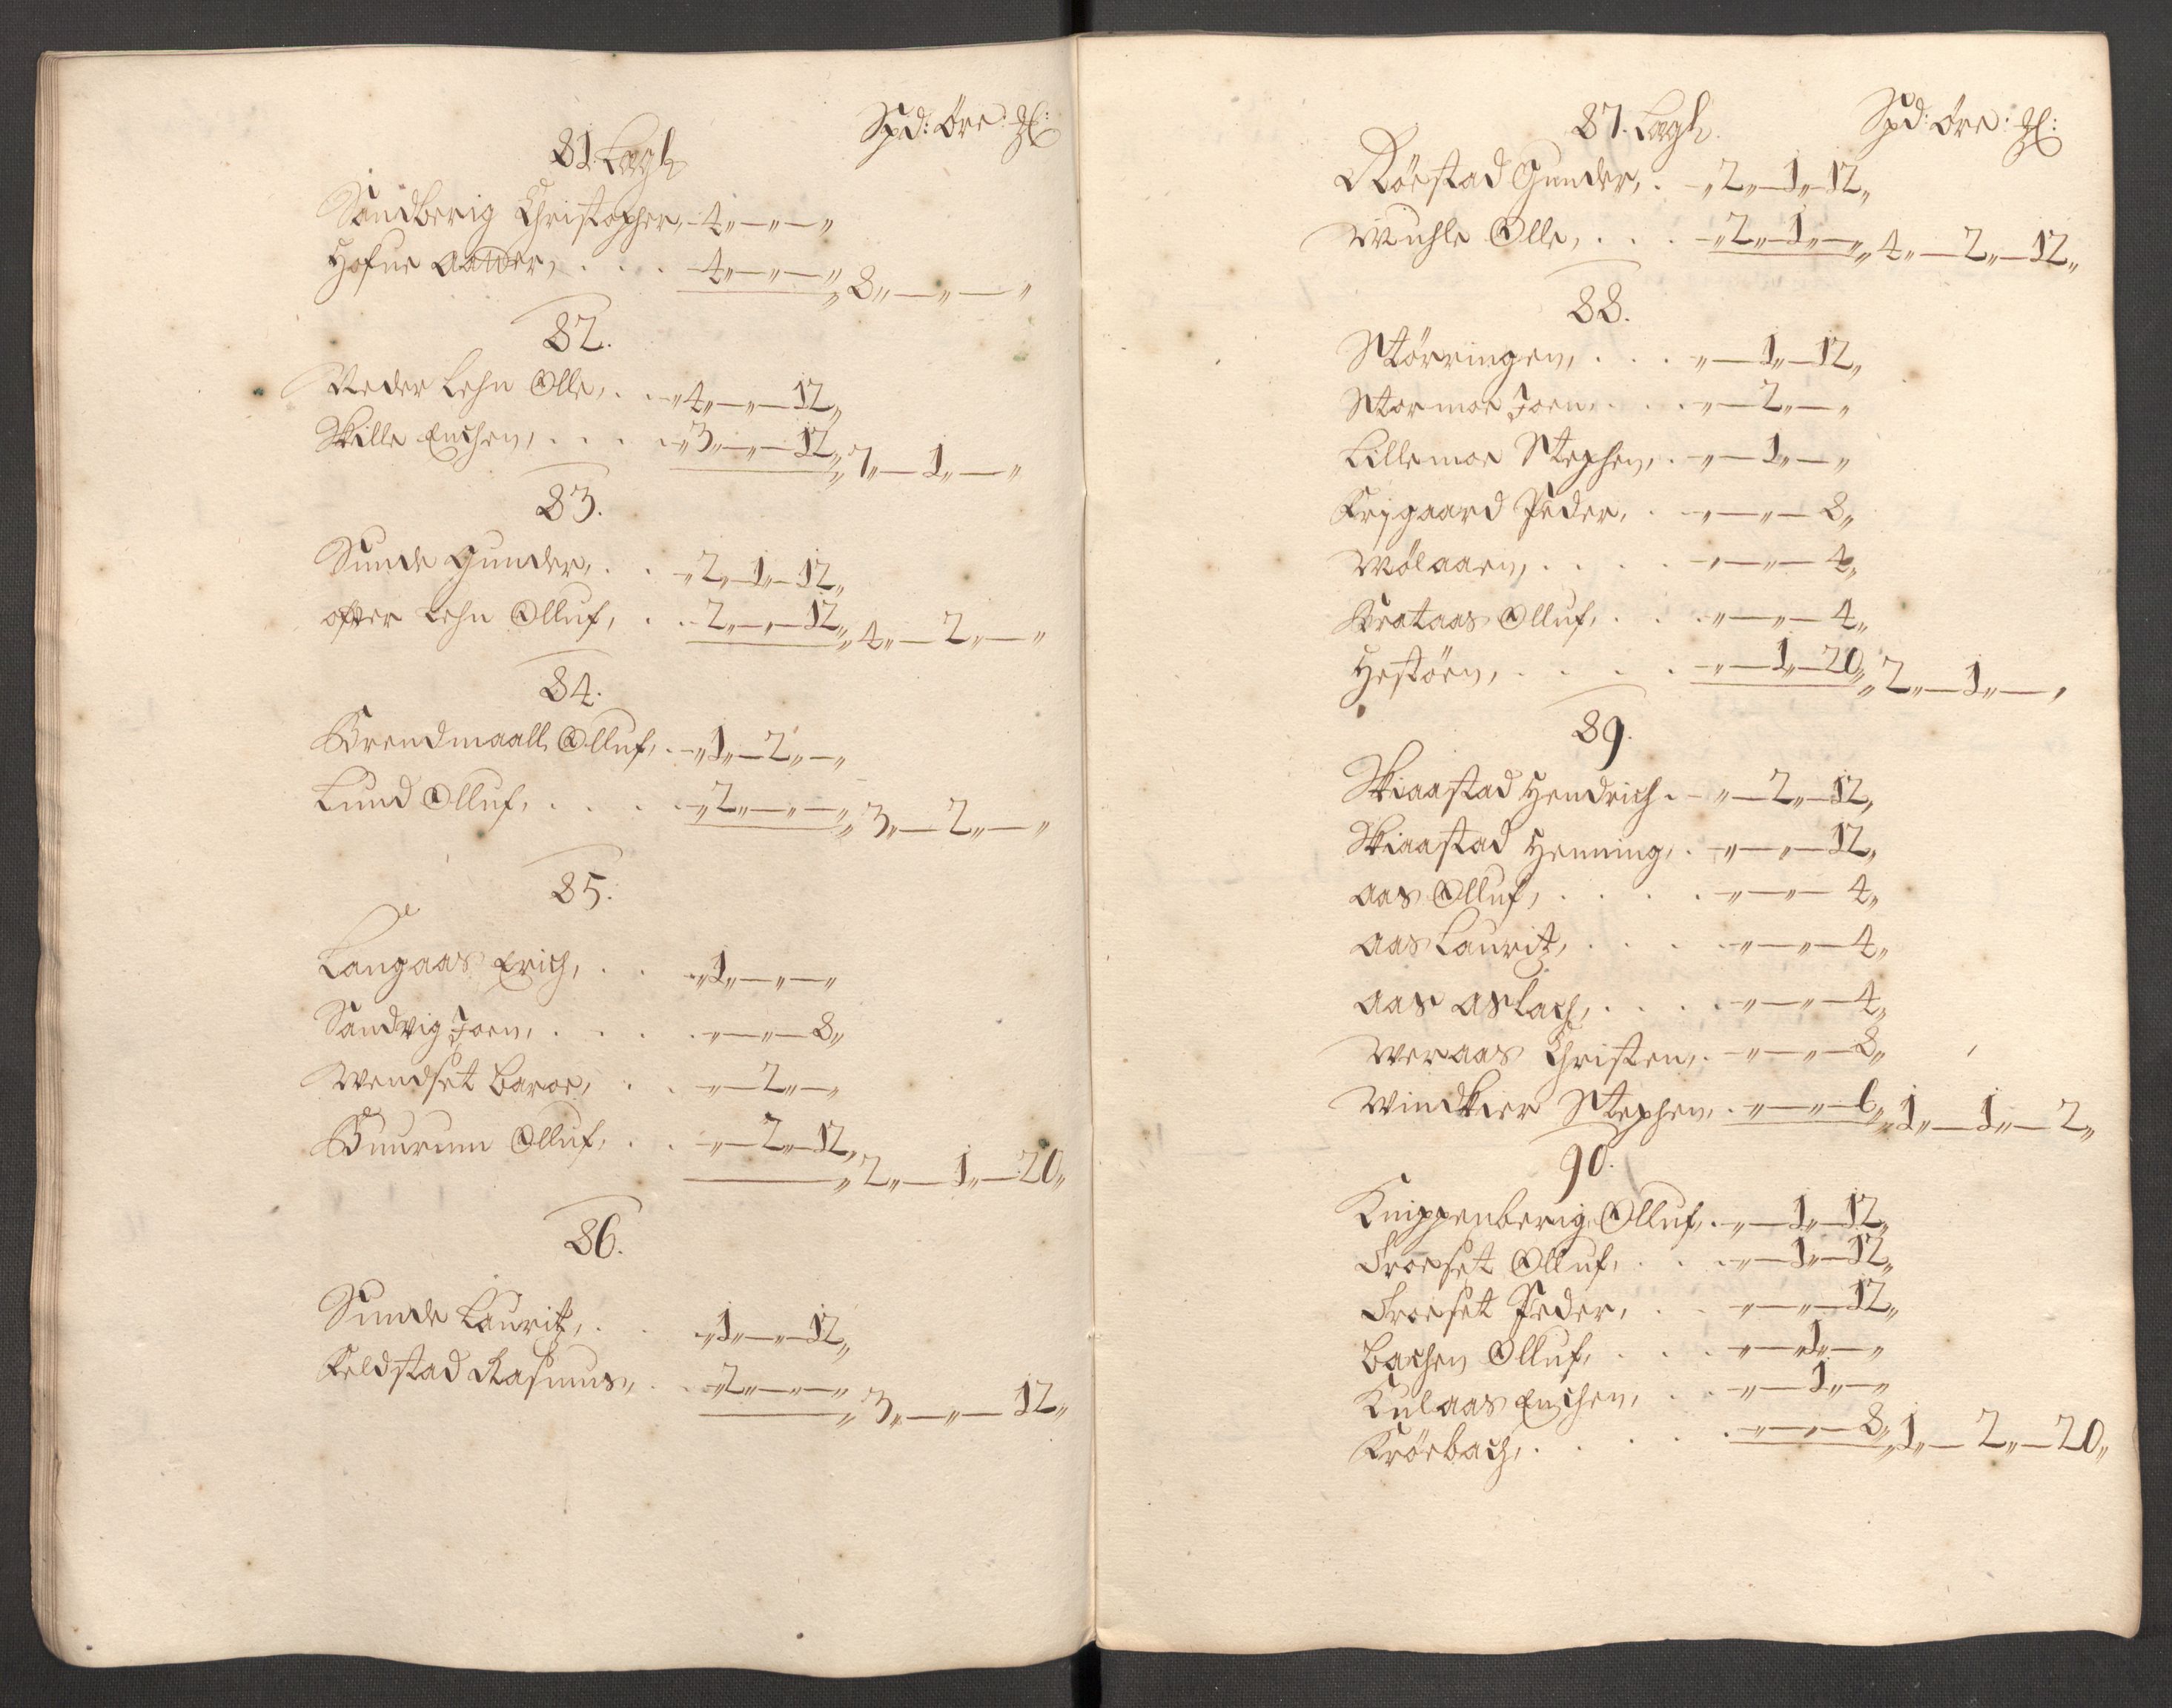 Spd: Öre: ₰:
81. Lagh
Sandberig Christopher, -4„-„-„
Hofne Aamder, . . . -4„-„-„ 8„-„-„
82.
Neder Lehn Olle, . . -„4„-„-12„
Skille Enchen, . . . . -„3„-„-12„ 7„-1„-„
83.
Sunde Gunder, . . -„2„-1„-12„
ofver Lehn Olluf, . . -2„-„-12„ 4„-2„-„
84.
Brendmaall Olluf, . -„1„-2„-„
Lund Olluf, . . . . -„2„-„-„ 3„-2„-„
85.
Langaas Erich, . . -„1„-„-„
Sandvig Joen, . . . . -„-„-8„
Wendset Baroe, . . -„-2„-„
Buurum Olluf, . . -„-2„-12„ 2„-1„-20„
86.
Sunde Lauritz, . . -„1„-„-12„
Feldstad Rasmus, . . -„2„-„-„ 3„-„-12„
87. Lagh. Spd: Öre: ₰:
Röestad Gunder, . -„2„-1„-12„
Muhle Olle, . . . -„2„-1„-„ 4„-2„-12„
88.
Störringen, . . . „-1„-12„
Stormoe Joen, . . . -„-2„-„
Lillemoe Stephen, . -„-1„-„
Krigaard Peder, . -„-„-8„
Mölaaen, . . . . -„-„-4„
Brataas Olluf, . . . -„-„-4„
Hestöen, . . . . -„-1„-20„ 2„-1„-„
89.
Skiaastad Hendrich . -„-2„-12„
Skiaastad Henning, . -„-„-12„
Aas Olluf, . . . . -„-„-4„
Aas Lauritz, . . . . -„-„-4„
Aas Aslach, . . . . -„-„-4„
Weraas Christen, . -„-„-8„
Windkier Stephen, . -„-„-6„ 1„-1„-2„
90.
Knippenberig Olluf, . -„-1„-12„
Froeset Olluf, . . . -„-1„-12„
Froeset Peder, . . -„-„-12„
Bachen Olluf, . . . -„-1„-„
Kulaas Enchen, . . -„-1„-„
Kröebach, . . . . . -„-„-8„ 1„-2„-20„